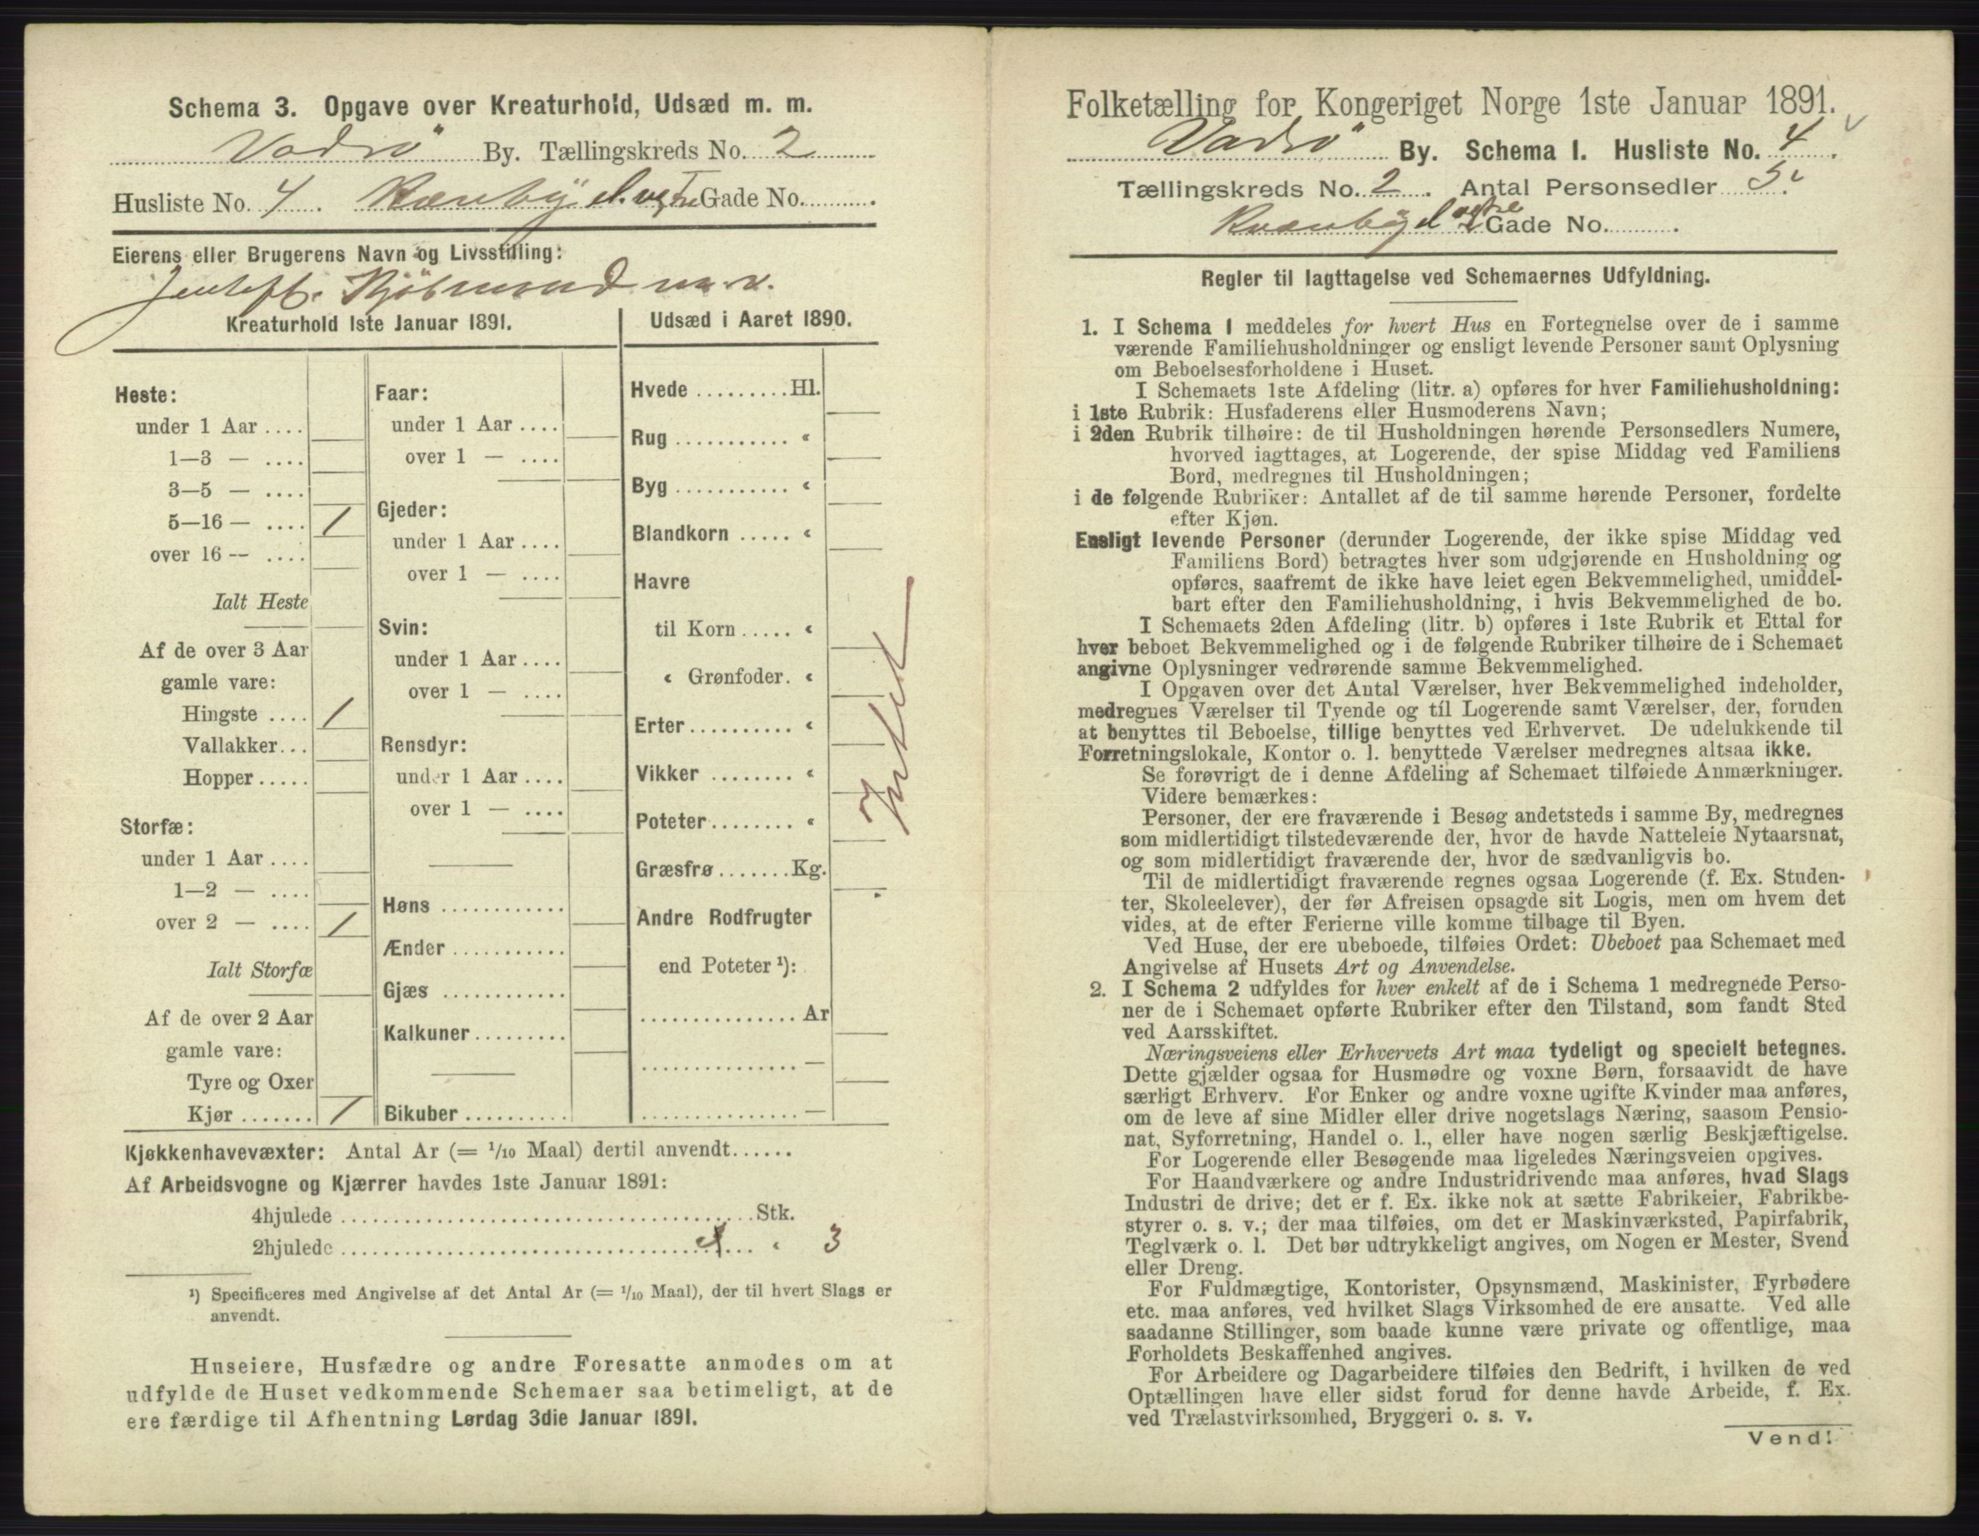 Schema 3. Opgave over Kreaturhold, Udsæd m. m.
Vadsø By. Tællingskreds No. 2
Husliste No. 4. Kvænbyel. vestre Gade No.
Eierens eller Brugerens Navn og Livsstilling:
Kjøbmand m. v.
Kreaturhold 1ste Januar 1891.
Heste:
under 1 Aar ....
1—3 — ....
3—5 — ....
5—16 — .... 1
over 16 — ....
Ialt Heste
Af de over 3 Aar
gamle vare:
Hingste .... 1
Vallakker...
Hopper.....
Storfæ:
under 1 Aar ....
1—2 — ....
over 2 — .... 1
Ialt Storfæ
Af de over 2 Aar
gamle vare:
Tyre og Oxer
Kjør....... 1
Faar:
under 1 Aar ....
over 1 — ....
Gjeder:
under 1 Aar ....
over 1 — ....
Svin:
under 1 Aar ....
over 1 — ....
Rensdyr:
under 1 Aar ....
over 1 — ....
Høns ............
Ænder ...........
Gjæs ............
Kalkuner.........
Bikuber ..........
Udsæd i Aaret 1890.
Hvede ......... Hl.
Rug ........... «
Byg ........... «
Blandkorn ..... «
Havre
til Korn ..... «
« Grønfoder. «
Erter.......... «
Vikker ........ «
Poteter........ «
Græsfrø.......Kg.
Andre Rodfrugter
end Poteter ¹):
............... Ar
............... —
............... —
Intet
Kjøkkenhavevæxter: Antal Ar (= 1/10 Maal) dertil anvendt......
Af Arbeidsvogne og Kjærrer havdes 1ste Januar 1891:
4hjulede ........................................ Stk.
2hjulede ........................................ « 3
¹) Specificeres med Angivelse af det Antal Ar (= 1/10 Maal), der til hvert Slags er
anvendt.
Huseiere, Husfædre og andre Foresatte anmodes om at
udfylde de Huset vedkommende Schemaer saa betimeligt, at de
ere færdige til Afhentning Lørdag 3die Januar 1891.
Folketælling for Kongeriget Norge 1ste Januar 1891.
Vadsø By. Schema I. Husliste No. 4.
Tællingskreds No. 2. Antal Personsedler 5.
Kvænbyel vestre Gade No.
Regler til Iagttagelse ved Schemaernes Udfyldning.
1. I Schema 1 meddeles for hvert Hus en Fortegnelse over de i samme
værende Familiehusholdninger og ensligt levende Personer samt Oplysning
om Beboelsesforholdene i Huset.
I Schemaets 1ste Afdeling (litr. a) opføres for hver Familiehusholdning:
i 1ste Rubrik: Husfaderens eller Husmoderens Navn;
i 2den Rubrik tilhøire: de til Husholdningen hørende Personsedlers Numere,
hvorved iagttages, at Logerende, der spise Middag ved Familiens
Bord, medregnes til Husholdningen;
i de følgende Rubriker: Antallet af de til samme hørende Personer, fordelte
efter Kjøn.
Ensligt levende Personer (derunder Logerende, der ikke spise Middag ved
Familiens Bord) betragtes hver som udgjørende en Husholdning og
opføres, saafremt de ikke have leiet egen Bekvemmelighed, umiddel-
bart efter den Familiehusholdning, i hvis Bekvemmelighed de bo.
I Schemaets 2den Afdeling (litr. b) opføres i 1ste Rubrik et Ettal for
hver beboet Bekvemmelighed og i de følgende Rubriker tilhøire de i Schemaet
angivne Oplysninger vedrørende samme Bekvemmelighed.
I Opgaven over det Antal Værelser, hver Bekvemmelighed indeholder,
medregnes Værelser til Tyende og til Logerende samt Værelser, der, foruden
at benyttes til Beboelse, tillige benyttes ved Erhvervet. De udelukkende til
Forretningslokale, Kontor o. l. benyttede Værelser medregnes altsaa ikke.
Se forøvrigt de i denne Afdeling af Schemaet tilføiede Anmærkninger.
Videre bemærkes:
Personer, der ere fraværende i Besøg andetsteds i samme By, medregnes
som midlertidigt tilstedeværende der, hvor de havde Natteleie Nytaarsnat,
og som midlertidigt fraværende der, hvor de sædvanligvis bo.
Til de midlertidigt fraværende regnes ogsaa Logerende (f. Ex. Studen-
ter, Skoleelever), der før Afreisen opsagde sit Logis, men om hvem det
vides, at de efter Ferierne ville komme tilbage til Byen.
Ved Huse, der ere ubeboede, tilføies Ordet: Ubeboet paa Schemaet med
Angivelse af Husets Art og Anvendelse.
2. I Schema 2 udfyldes for hver enkelt af de i Schema 1 medregnede Perso-
ner de i Schemaet opførte Rubriker efter den Tilstand, som fandt Sted
ved Aarsskiftet.
Næringsveiens eller Erhvervets Art maa tydeligt og specielt betegnes.
Dette gjælder ogsaa for Husmødre og voxne Børn, forsaavidt de have
særligt Erhverv. For Enker og andre voxne ugifte Kvinder maa anføres,
om de leve af sine Midler eller drive nogetslags Næring, saasom Pensio-
nat, Syforretning, Handel o. l., eller have nogen særlig Beskjæftigelse.
For Logerende eller Besøgende maa ligeledes Næringsveien opgives.
For Haandværkere og andre Industridrivende maa anføres, hvad Slags
Industri de drive; det er f. Ex. ikke nok at sætte Fabrikeier, Fabrikbe-
styrer o. s. v.; der maa tilføies, om det er Maskinværksted, Papirfabrik,
Teglværk o. l. Det bør udtrykkeligt angives, om Nogen er Mester, Svend
eller Dreng.
For Fuldmægtige, Kontorister, Opsynsmænd, Maskinister, Fyrbødere
etc. maa anføres, ved hvilket Slags Virksomhed de ere ansatte. Ved alle
saadanne Stillinger, som baade kunne være private og offentlige, maa
Forholdets Beskaffenhed angives.
For Arbeidere og Dagarbeidere tilføies den Bedrift, i hvilken de ved
Optællingen have eller sidst forud for denne havde Arbeide, f. Ex.
ved Trælastvirksomhed, Bryggeri o. s. v.
Vend!